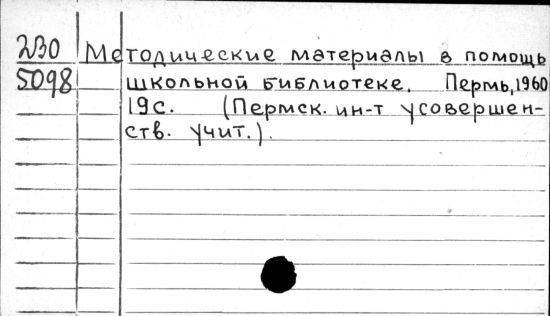 2В0 Методические материалы в помощь
5098 школьной библиотеке. Пермь, 1960
19с. (Пермск. ин-т усовершен-
ств. учит.).